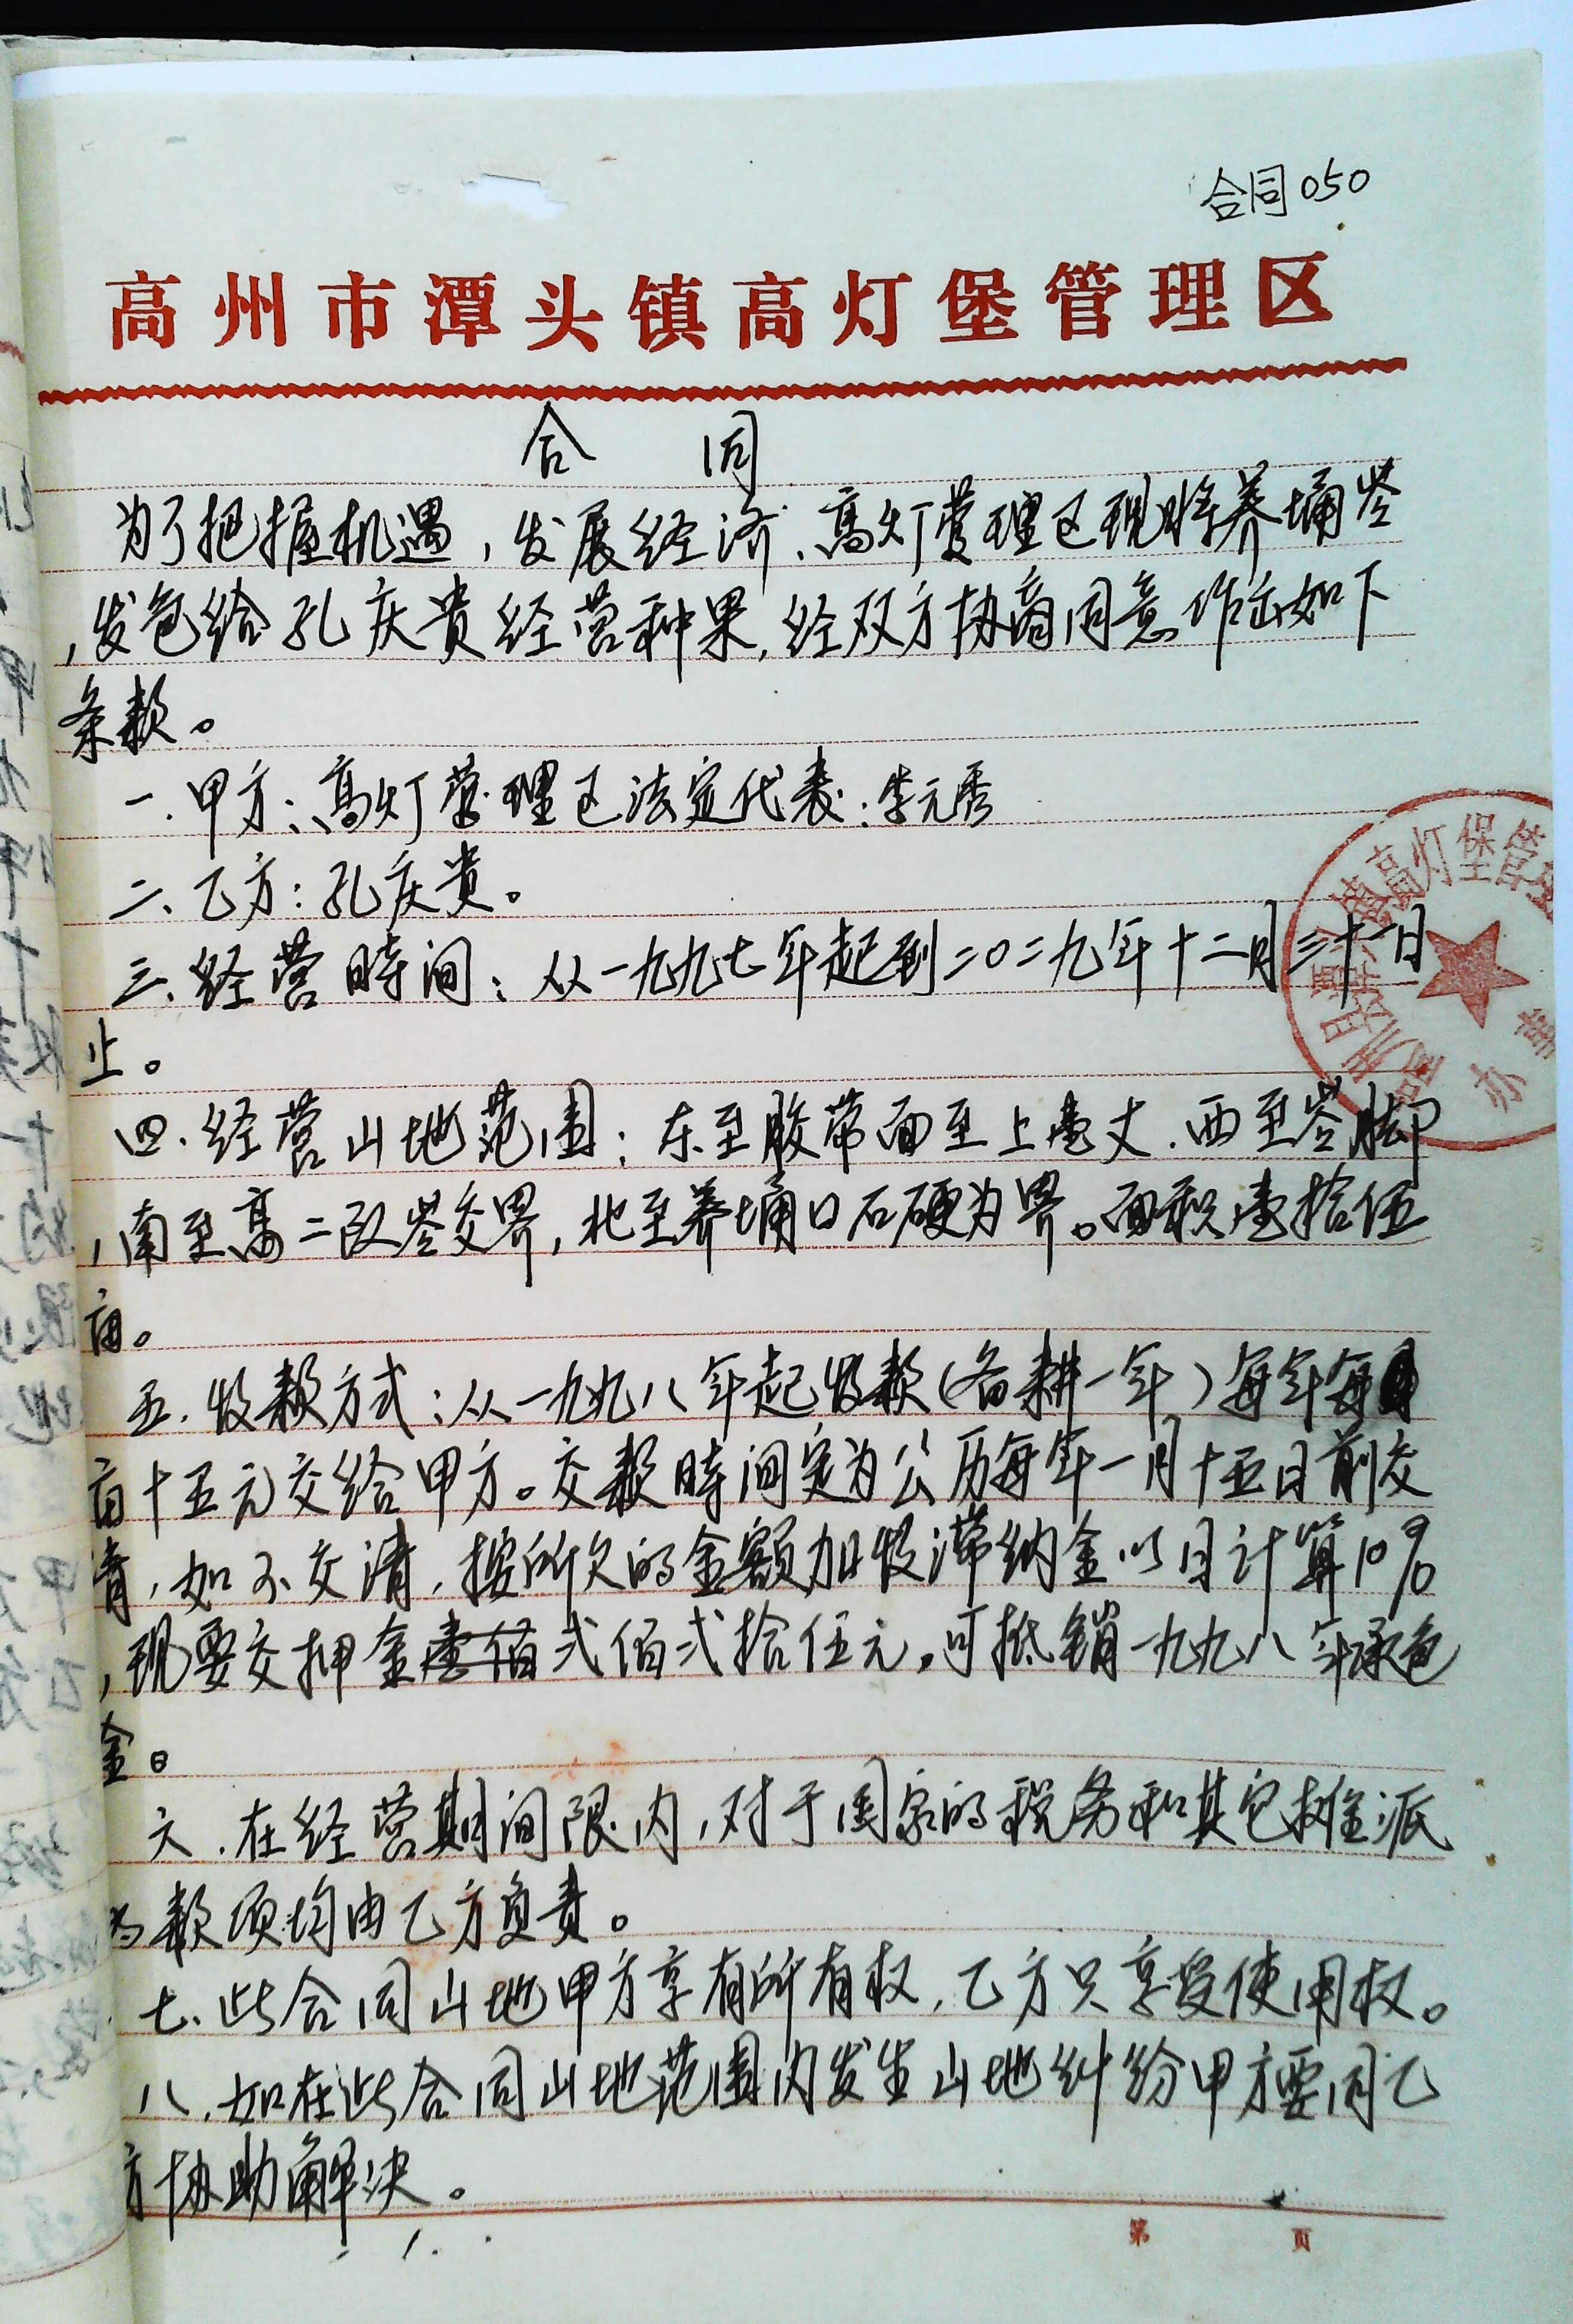 合同050
高州市潭头镇高灯堡管理区
合 同
为了把握机遇,发展经济、高灯管理区现将养埇岺
,发包给孔庆贵经营种果,经双方协商同意作出如下
条款。
一.甲方:高灯管理区法定代表:李元秀
二、乙方:孔庆贵。
三、经营时间:从一九九七年起到二0二九年十二月三十一日
止。
四.经营山地范围:东至胶带面至上壹丈.西至岺脚
,南至高二队岺交界,北至养埇口石硬为界。面积壹拾伍
亩。
五.收款方式:从一九九八年起收款(备耕一年)每年每
亩十五元交给甲方。交款时间定为公历每年一月十五日前交
清,如不交清,按所欠的金额加收滞纳金以月计算10%
,现要交押金贰佰贰拾伍元,可抵销一九九八年承包
金。
六.在经营期间限内,对于国家的税务和其它摊派
款项均由乙方负责。
七、此合同山地甲方享有所有权,乙方只享受使用权。
八.如在此合同山地范围内发生山地纠纷甲方要同乙
方协助解决。
高灯堡管理
办事
第 页